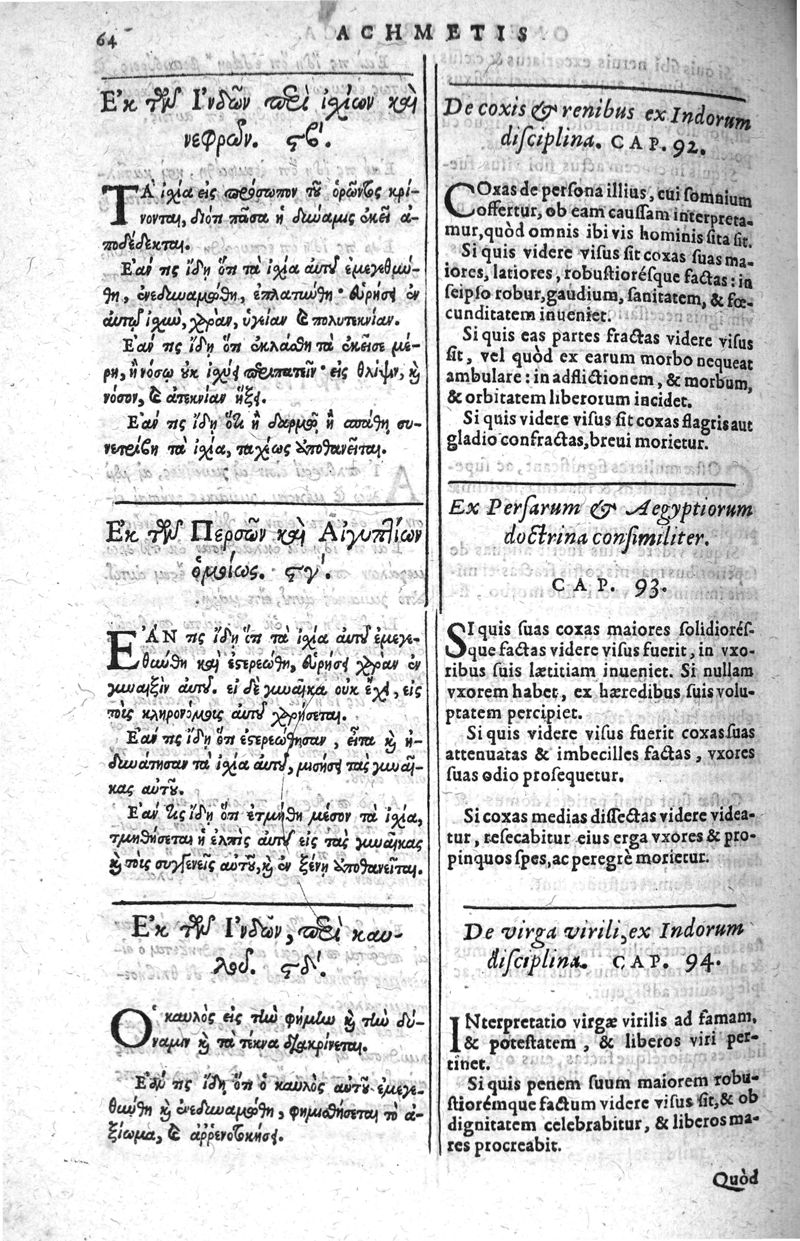 64
ACHMETIS
Ἐκ τῶν Ἰνδῶν περὶ ἰσχίων καὶ
νεφρῶν. ϟβʹ.
ΤΑ ἰσχία εἰς πρόσωπον τοῦ ὁρῶντος κρί-
νονται, διότι πᾶσα ἡ δύναμις ἐκεῖ ἀ-
ποδέδεκται.
Ἐάν τις ἴδῃ ὅτι τὰ ἰσχία αὐτοῦ ἐμεγεθύν-
θη, ἐνεδυναμώθη, ἐπλατύνθη· εὑρήσει ἐν
αὐτῷ ἰσχὺν, χαρὰν, ὑγείαν καὶ πολυτεκνίαν.
Ἐάν τις ἴδῃ ὅτι ἐκλάσθη τὰ ἐκεῖσε μέ-
ρη, ἢ νόσῳ οὐκ ἰσχύει περιπατεῖν· εἰς θλίψιν, καὶ
νόσον, καὶ ἀτεκνίαν ἥξει.
Ἐάν τις ἴδῃ ὅτι ἢ δαρμῷ ἢ σπάθῃ συ-
νετρίβη τὰ ἰσχία, ταχέως ἀποθανεῖται.
Ἐκ τῶν Περσῶν καὶ Αἰγυπτίων
ὁμοίως. ϟγʹ.
ΕΑΝ τις ἴδῃ ὅτι τὰ ἰσχία αὐτοῦ ἐμεγε-
θύνθη καὶ ἐστερεώθη, εὑρήσει χαρὰν ἐν
γυναιξὶν αὐτοῦ. εἰ δὲ γυναῖκα οὐκ ἔχει, εἰς
τοῖς κληρονόμοις αὐτοῦ χαρήσεται.
Ἐάν τις ἴδῃ ὅτι ἐστερεώθησαν, εἶτα καὶ ἠ-
δυνάτησαν τὰ ἰσχία αὐτοῦ, μισήσει τὰς γυναῖ-
κας αὐτοῦ.
Ἐάν τις ἴδῃ ὅτι ἐτμήθη μέσον τὰ ἰσχία,
τμηθήσεται ἡ ἐλπὶς αὐτοῦ εἰς τὰς γυναῖκας
καὶ τοῖς συγγενεῖς αὐτοῦ, καὶ ἐν ξένῃ ἀποθανεῖται.
Ἐκ τῶν Ἰνδῶν, περὶ καυ-
λοῦ. ϟδʹ.
Ὁ καυλὸς εἰς τὴν φήμην καὶ τὴν δύ-
ναμιν καὶ τὰ τέκνα διακρίνεται.
Ἐάν τις ἴδῃ ὅτι ὁ καυλὸς αὐτοῦ ἐμεγε-
θύνθη καὶ ἐνεδυναμώθη, φημισθήσεται τὸ ἀ-
ξίωμα, καὶ ἀῤῥενοτοκήσει.
De coxis & renibus ex Indorum
disciplina. CAP. 92.
COxas de persona illius, cui somnium
offertur, ob eam caussam interpreta-
mur, quòd omnis ibi vis hominis sita sit.
Si quis videre visus sit coxas suas ma-
iores, latiores, robustiorésque factas: in
seipso robur, gaudium, sanitatem, & fœ-
cunditatem inueniet.
Si quis eas partes fractas videre visus
sit, vel quòd ex earum morbo nequeat
ambulare: in adflictionem, & morbum,
& orbitatem liberorum incidet.
Si quis videre visus sit coxas flagris aut
gladio confractas, breui morietur.
Ex Persarum & Aegyptiorum
doctrina consimiliter.
CAP. 93.
SI quis suas coxas maiores solidiorés-
que factas videre visus fuerit, in vxo-
ribus suis lætitiam inueniet. Si nullam
vxorem habet, ex hæredibus suis volu-
ptatem percipiet.
Si quis videre visus fuerit coxas suas
attenuatas & imbecilles factas, vxores
suas odio prosequetur.
Si coxas medias dissectas videre videa-
tur, resecabitur eius erga vxores & pro-
pinquos spes, ac peregrè morietur.
De virga virili, ex Indorum
disciplina. CAP. 94.
INterpretatio virgæ virilis ad famam,
& potestatem, & liberos viri per-
tinet.
Si quis penem suum maiorem robu-
stiorémque factum videre visus sit, & ob
dignitatem celebrabitur, & liberos ma-
res procreabit.
Quòd